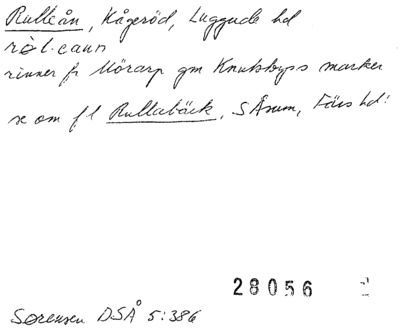 Rulleån, Kågeröd, Luggude hd
rinner fr Mörarp gm Knutstorps marker
se om fl Rullabäck, S Åsum, Färs hd:
28056
Sørensen DSÅ 5:386